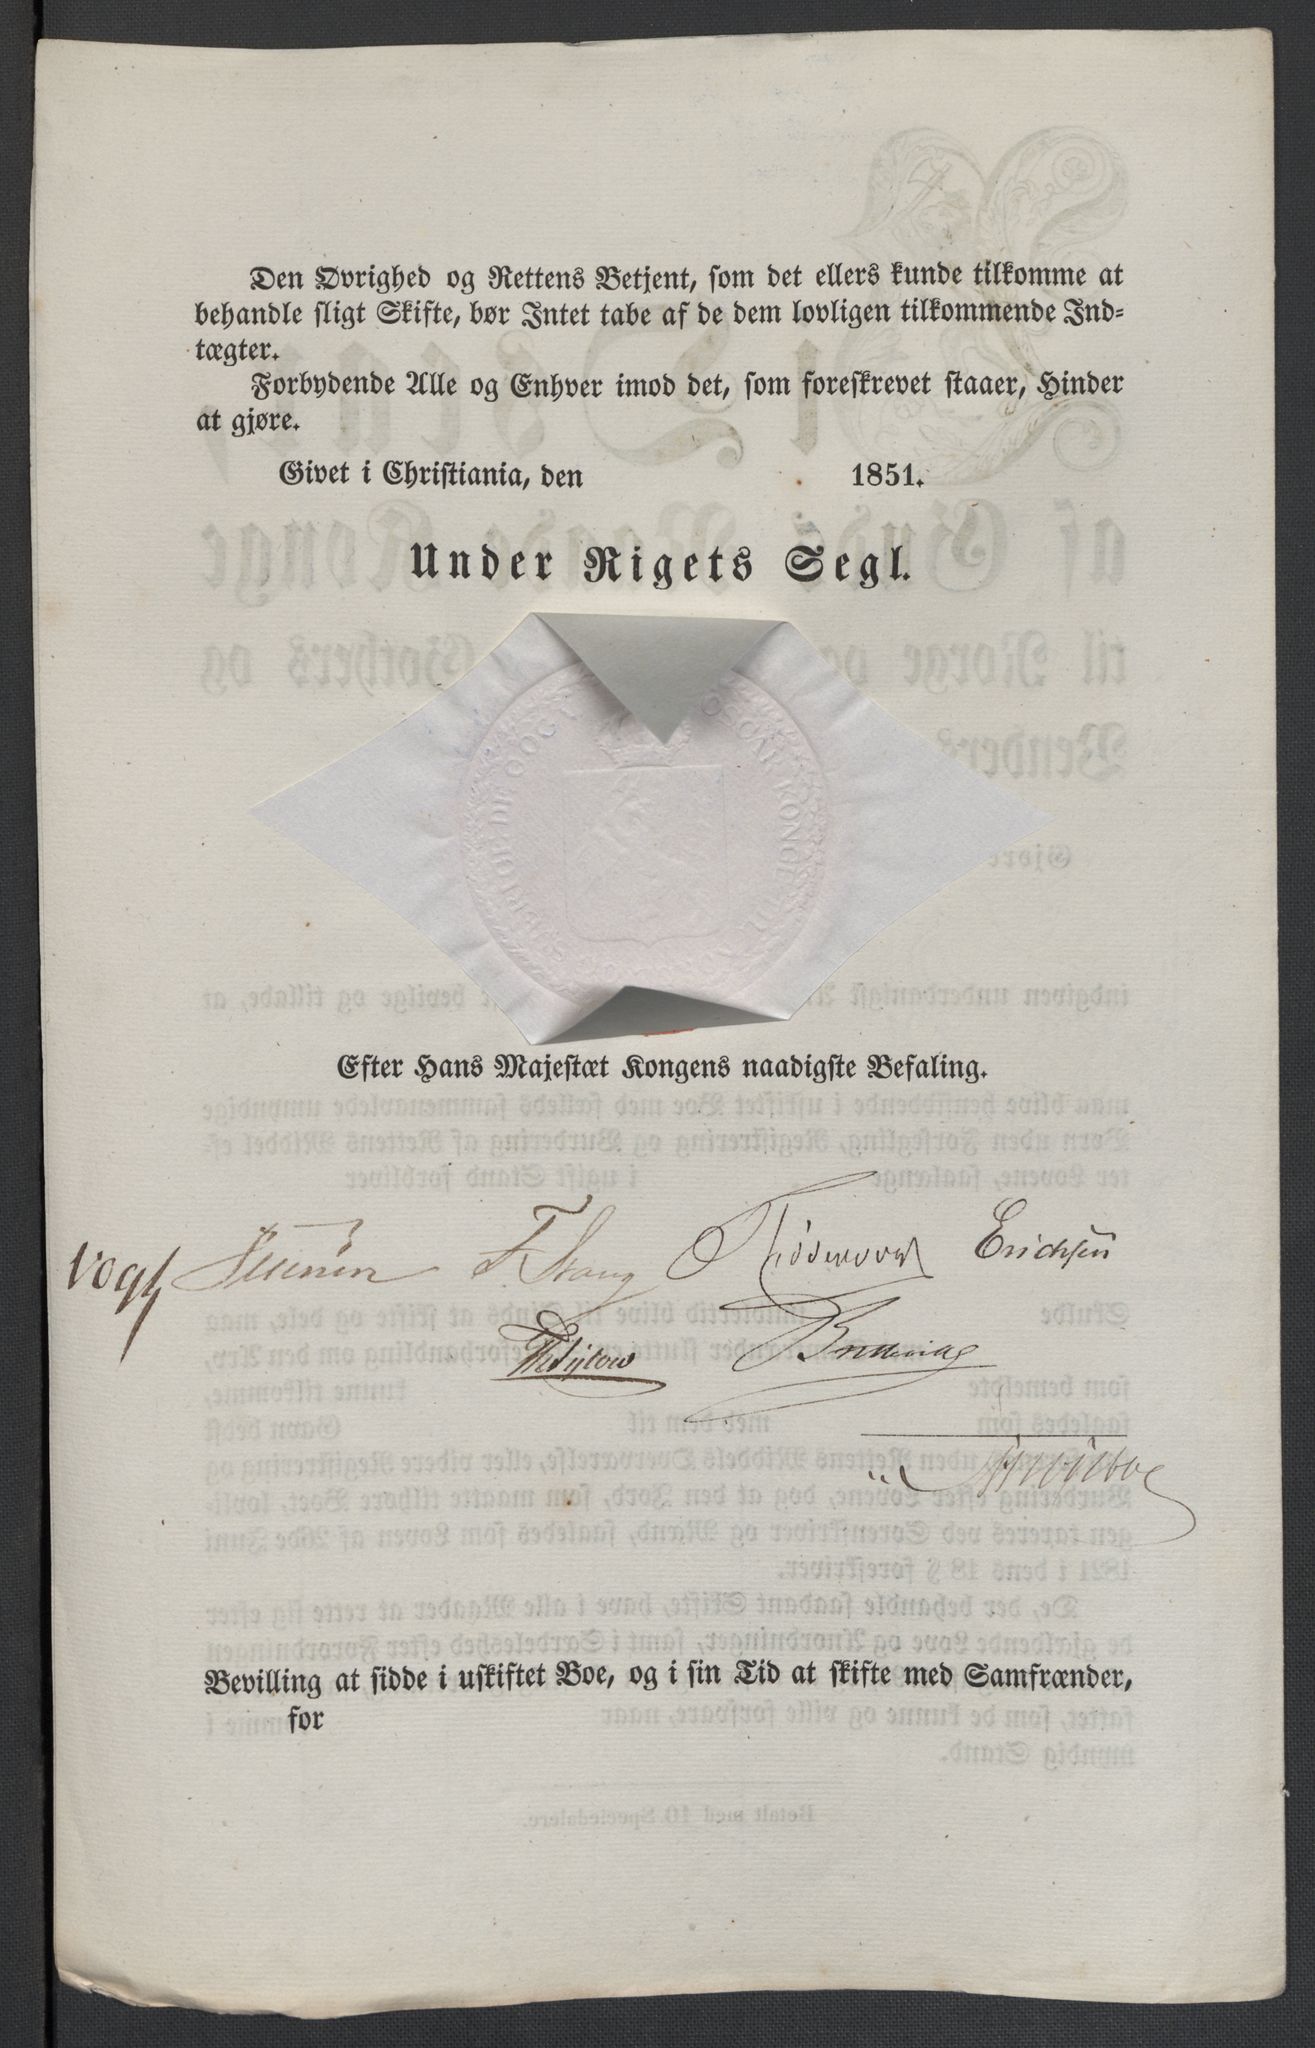 Den Øvrighed og Rettens Betjent, som det ellers kunde tilkomme at
behandle sligt Skifte, bør Intet tabe af de dem lovligen tilkommende Ind-
tægter.
Forbydende Alle og Enhver imod det, som foreskrevet staaer, Hinder
at gjøre.
Givet i Christiania, den 1851.
Under Rigets Segl.
OSCAR KONGE TIL
Efter Hans Majestæt Kongens naadigste Befaling.
Vogt F. Stang Erichsen
Bevilling at sidde i uskiftet Boe, og i sin Tid at skifte med Samfrænder,
for